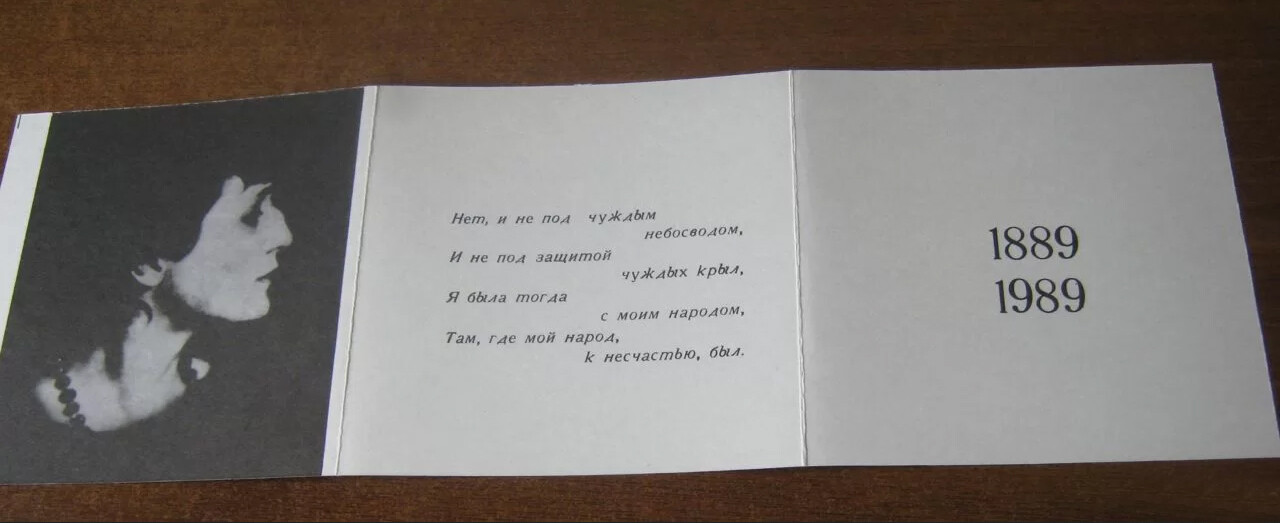 Нет, и не под чуждым
небосводом,
И не под защитой
чуждых крыл,
Я была тогда
с моим народом,
Там, где мой народ,
к несчастью, был.
1889
1989